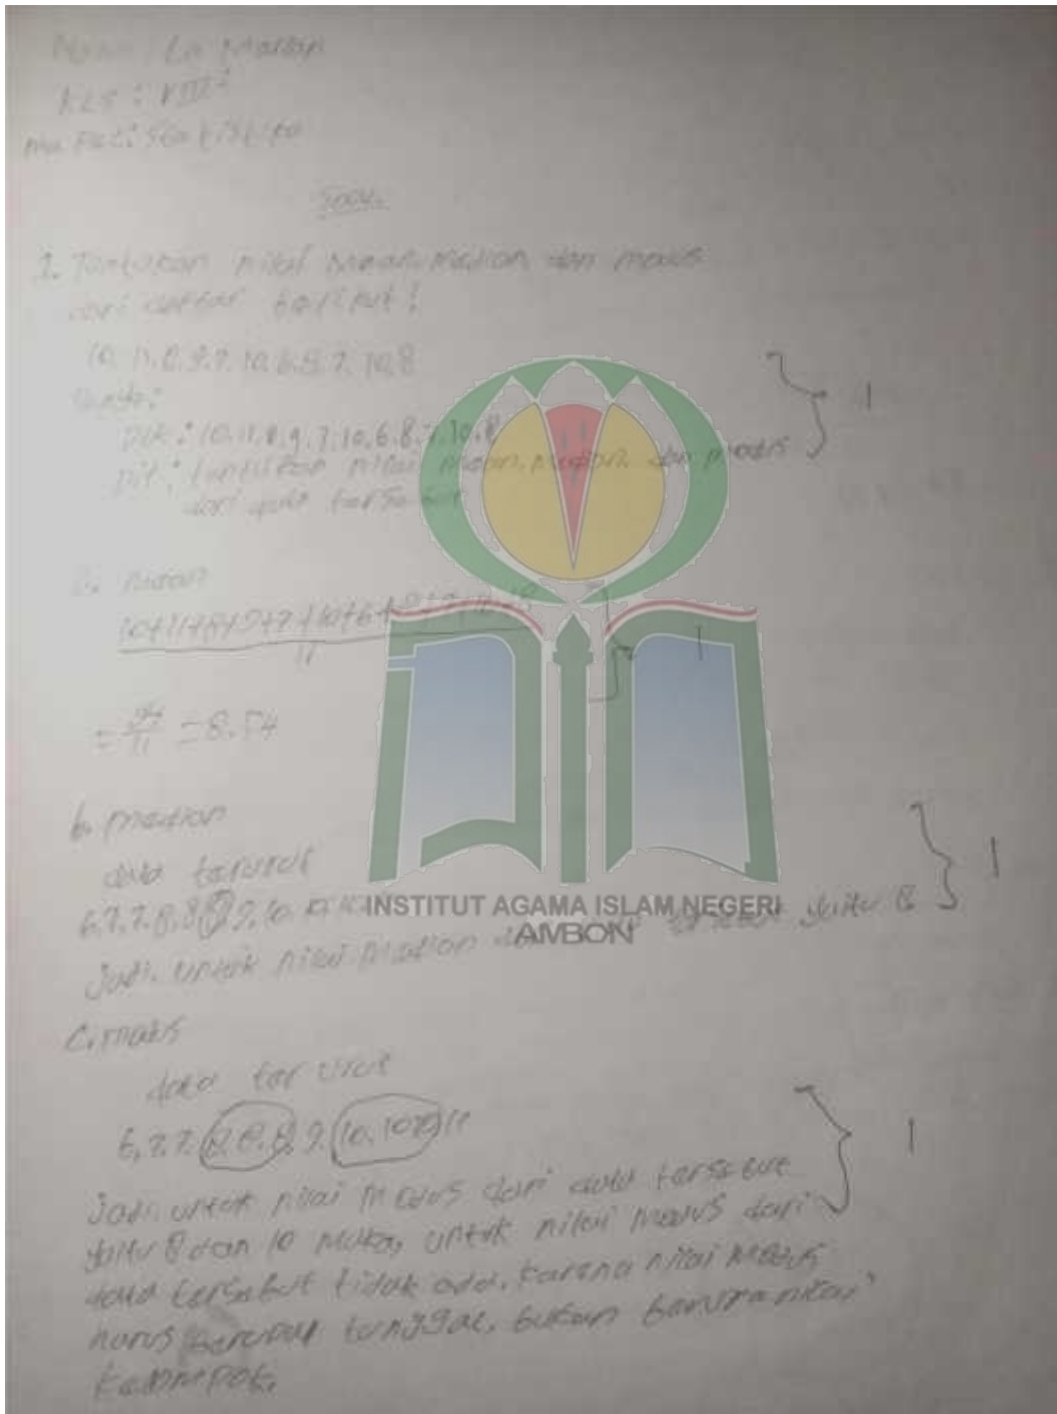 Nama : La
KLS : VIII²
Soal
1. Tentukan nilai mean, median dan modus
dari daftar berikut!
10. 11. 8. 9. 7. 10. 6. 8. 7. 10. 8
Dik : 10. 11. 8. 9. 7. 10. 6. 8. 7. 10. 8
Dit : tentukan nilai mean, median dan modus
dari data tersebut
1
a. mean
10+11+8+9+7+10+6+8+7+10+8
11
1
= 94/11 = 8.54
b. median
data terurut
6. 7. 7. 8. 8 8 9. 10.
1
INSTITUT AGAMA ISLAM NEGERI
AMBON
jadi. untuk nilai median tersebut yaitu 8
C. modus
data terurut
6, 7. 7. 8. 8. 8. 9. 10. 10 10 11
1
jadi. untuk nilai modus dari data tersebut
yaitu 8 dan 10 maka, untuk nilai modus dari
data tersebut tidak ada. karena nilai modus
harus berupa tunggal, bukan berupa nilai
kelompok.